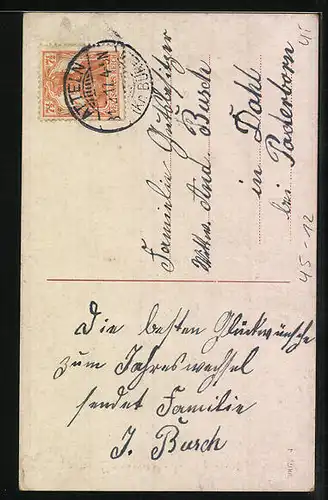 ATTELN
7½
Familie Gutsbesitzer
Wtw. And. Busch
in Dahl
bei Paderborn
45-12
Die besten Glückwünsche
zum Jahreswechsel
sendet Familie
J. Busch